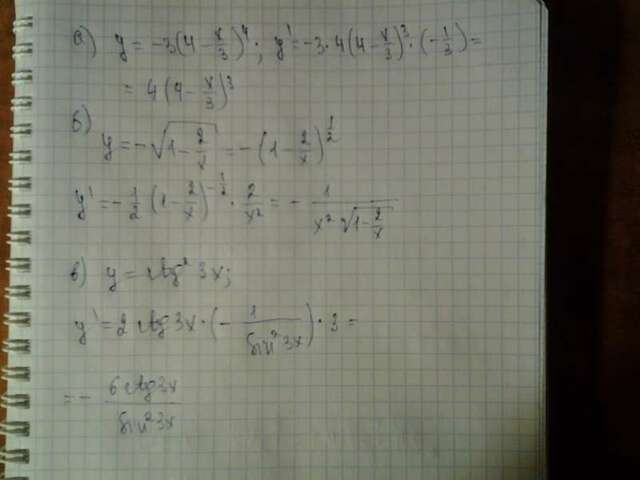 а) y = -3(4 - x/3)⁴; y' = -3·4(4 - x/3)³·(-1/3) =
= 4(4 - x/3)³
б)
y = -√(1 - 2/x) = -(1 - 2/x)^(1/2)
y' = -1/2 (1 - 2/x)^(-1/2) · 2/x² = - 1/(x²·√(1 - 2/x))
в) y = ctg² 3x;
y' = 2 ctg 3x·(- 1/(sin² 3x))·3 =
= - (6 ctg 3x)/(sin² 3x)